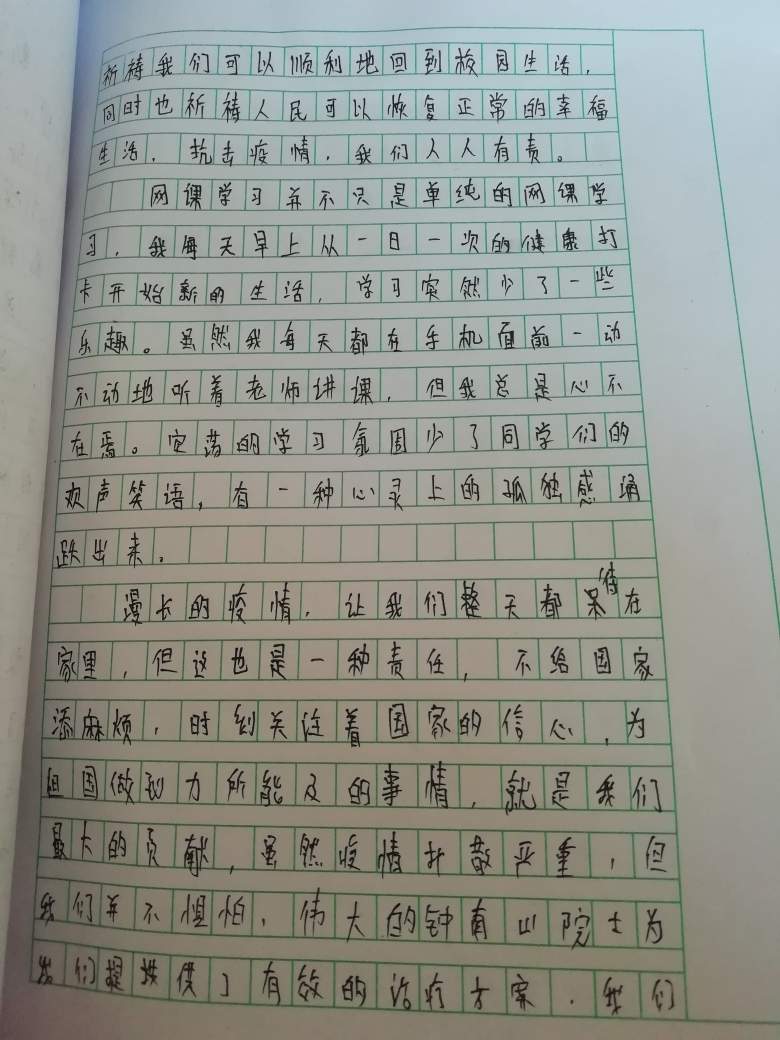 祈祷我们可以顺利地回到校园生活，
同时也祈祷人民可以恢复正常的幸福
生活，抗击疫情，我们人人有责。
网课学习并不只是单纯的网课学
习，我每天早上从一日一次的健康打
卡开始新的生活，学习突然少了一些
乐趣。虽然我每天都在手机面前一动
不动地听着老师讲课，但我总是心不
在焉。空荡的学习氛围少了同学们的
欢声笑语，有一种心灵上的孤独感涌
跃出来。
漫长的疫情，让我们整天都待在
家里，但这也是一种责任，不给国家
添麻烦，时刻关注着国家的信心，为
祖国做到力所能及的事情，就是我们
最大的贡献，虽然疫情扩散严重，但
我们并不惧怕，伟大的钟南山院士为
我们提供了有效的治疗方案，我们